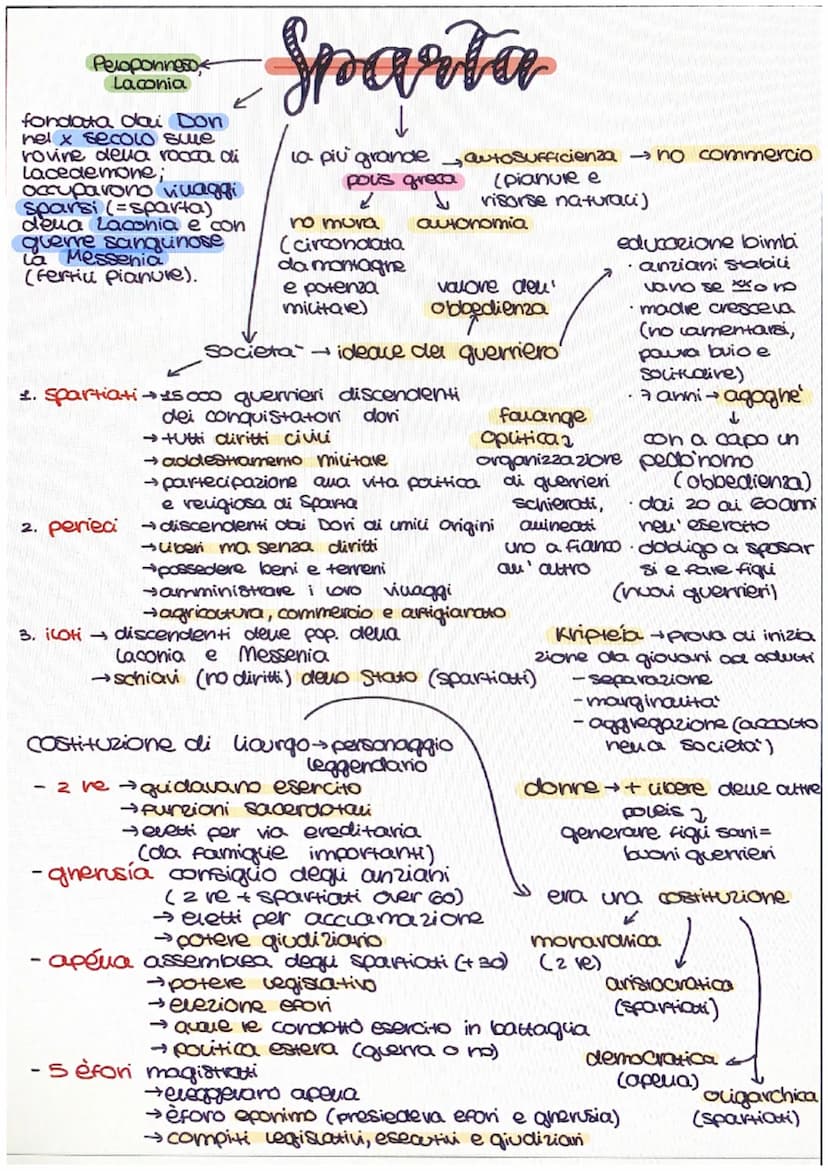 Sparta
Peloponneso,
Laconia
fondata dai Dori
nel X secolo sulle
rovine della rocca di
Lacedemone;
occuparono villaggi
sparsi (= sparta)
della Laconia e con
guerre sanguinose
la Messenia
(fertili pianure).
la più grande → autosufficienza → no commercio
polis greca (pianure e
risorse naturali)
no mura autonomia
(circondata
da montagne
e potenza
militare)
valore dell'
obbedienza
società → ideale del guerriero
educazione bimbi
· anziani stabili
vano se o no
· madre cresceva
(no lamentarsi,
paura buio e
solitudine)
· 7 anni → agoghé
con a capo un
pedònomo
(obbedienza)
· dai 20 ai 60 anni
nell'esercito
· obbligo a sposar
si e fare figli
(nuovi guerrieri)
1. spartiati → 15000 guerrieri discendenti
dei conquistatori dori
→ tutti diritti civili
→ addestramento militare
→ partecipazione alla vita politica
e religiosa di Sparta
2. perieci → discendenti dai Dori di umili origini
→ liberi ma senza diritti
→ possedere beni e terreni
→ amministrare i loro villaggi
→ agricoltura, commercio e artigianato
3. iloti → discendenti delle pop. della
Laconia e Messenia
→ schiavi (no diritti) dello Stato (spartiati)
falange
oplitica
organizzazione
di guerrieri
schierati,
allineati
uno a fianco
all'altro
Kripteía → prova di inizia
zione da giovani ad adulti
- separazione
- marginalità
- aggregazione (accolto
nella società)
costituzione di Licurgo → personaggio
leggendario
- 2 re → guidavano esercito
→ funzioni sacerdotali
→ eletti per via ereditaria
(da famiglie importanti)
- gherusía consiglio degli anziani
(2 re + spartiati over 60)
→ eletti per acclamazione
→ potere giudiziario
- apélla assemblea degli spartiati (+30)
→ potere legislativo
→ elezione efori
→ quale re condotto esercito in battaglia
→ politica estera (guerra o no)
- 5 èfori magistrati
→ eleggevano apella
→ èforo eponimo (presiedeva efori e gherusia)
→ compiti legislativi, esecutivi e giudiziari
donne → + libere delle altre
poleis
generare figli sani =
buoni guerrieri
era una costituzione
monarchica
(2 re)
aristocratica
(spartiati)
democratica
(apella)
oligarchica
(spartiati)